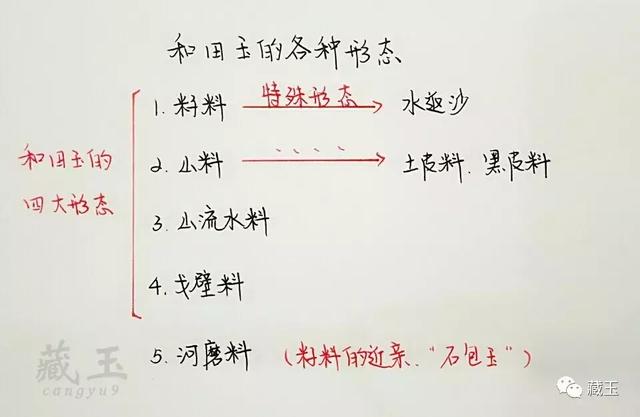 和田玉的各种形态
和田玉的
四大形态
1. 籽料 特殊形态 水亟沙
2. 山料 、、、、 土皮料、黑皮料
3. 山流水料
4. 戈壁料
5. 河磨料 (籽料的近亲、"石包玉")
藏玉
cangyu9
藏玉